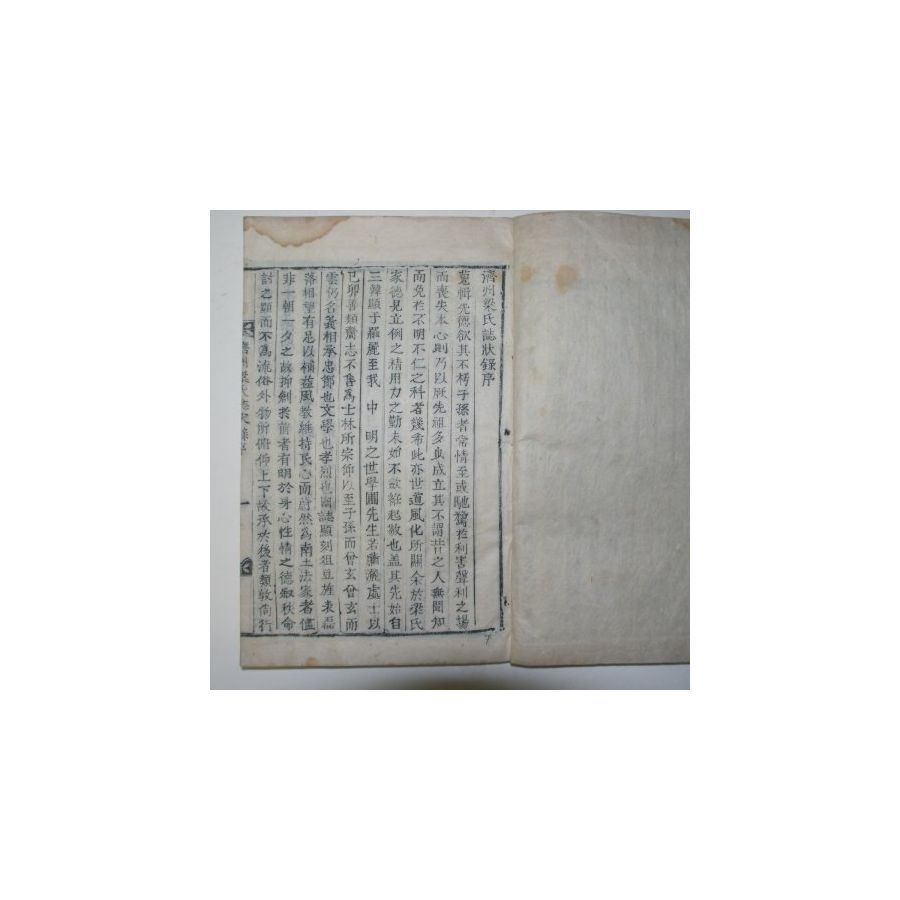 濟州梁氏誌狀錄序
蒐輯先德欲其不樗子孫者常情至或馳騖於利害聲利之場
而喪失本心則乃以厥先祖多也成立其不謂昔之人無聞知
而免於不明不仁之科者幾希此亦世道風化所關余於梁氏
家德見立例之精用力之勤未始不欽艶起敬也盖其先始自
三韓顯于羅麗至我中明之世學圃先生若瀟灑處士以
己卯善類齎志不售爲士林所宗仰以至子孫而曾玄曾玄而
雲仍名義相承忠節也文學也孝烈也幽誌顯刻俎豆旌表磊
落相望有足以補益風敎維持民心而蔚然爲南土法家者儘
非一朝一夕之故抑刱於舊者有明於身心性情之德叙秩命
討之顯而不爲流俗外物所俯仰上下故承於後者類敦尙行
濟州梁氏誌狀錄序 一